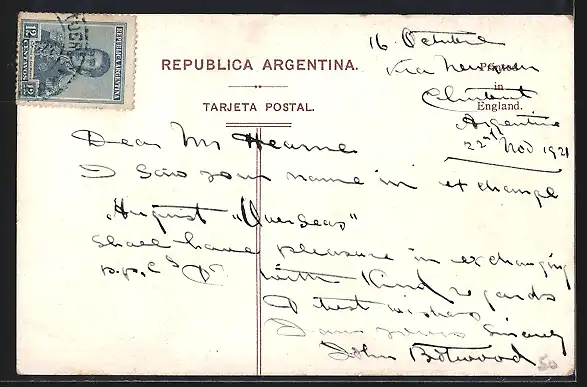 REPUBLICA ARGENTINA
12 CENTAVOS 12
REPUBLICA ARGENTINA.
TARJETA POSTAL.
Printed
in
England.
16 Octubre
Via
Argentine
22nd Nov 1921
Dear Mr Hearne
I saw your name in exchange
August "Overseas"
Shall have pleasure in exchanging
p.p.cs with kind regards
& best wishes
I am yours Sincerely
John Botwood
50